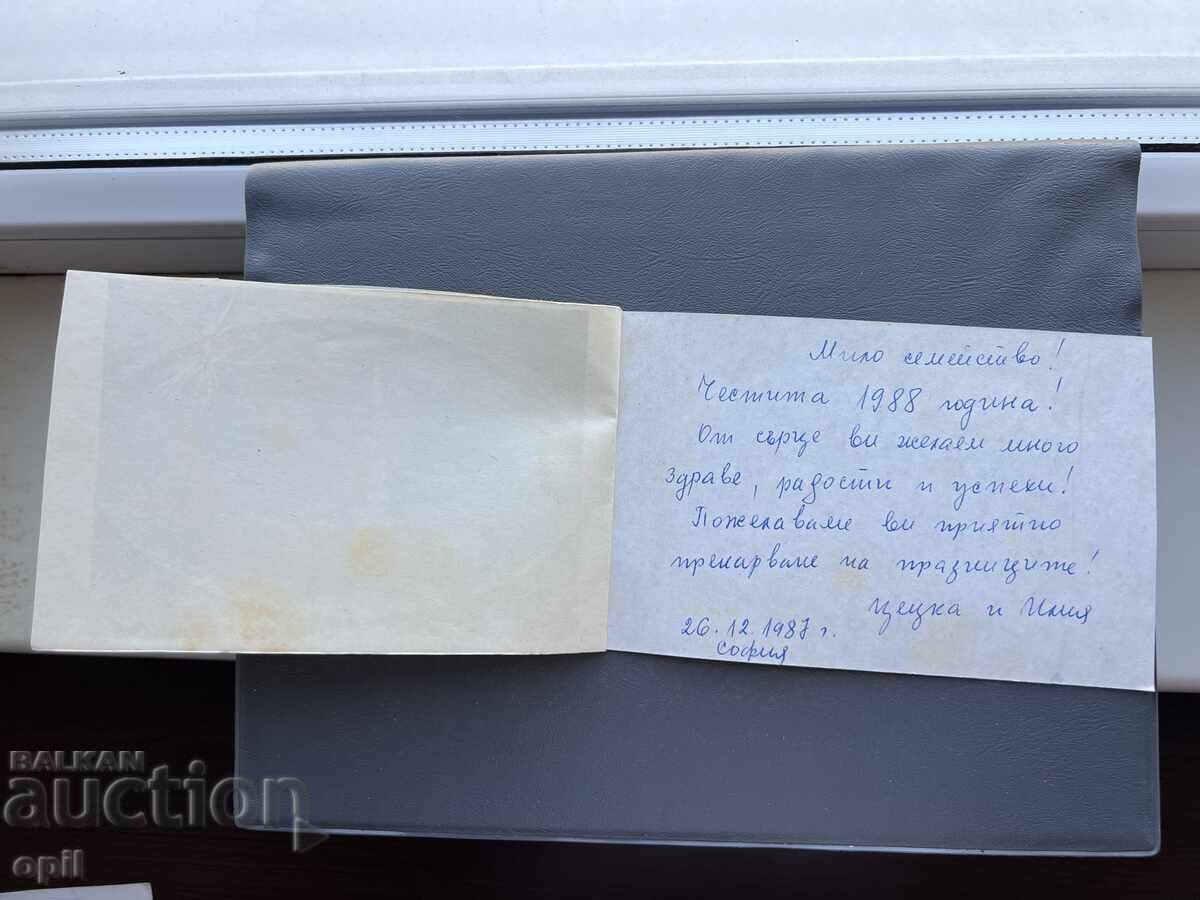 Мило семейство!
Честита 1988 година!
От сърце ви желаем много
здраве, радости и успехи!
Пожелаваме ви приятно
прекарване на празниците!
Цецка и Илия
26.12.1987 г.
София
BALKAN
auction
opil